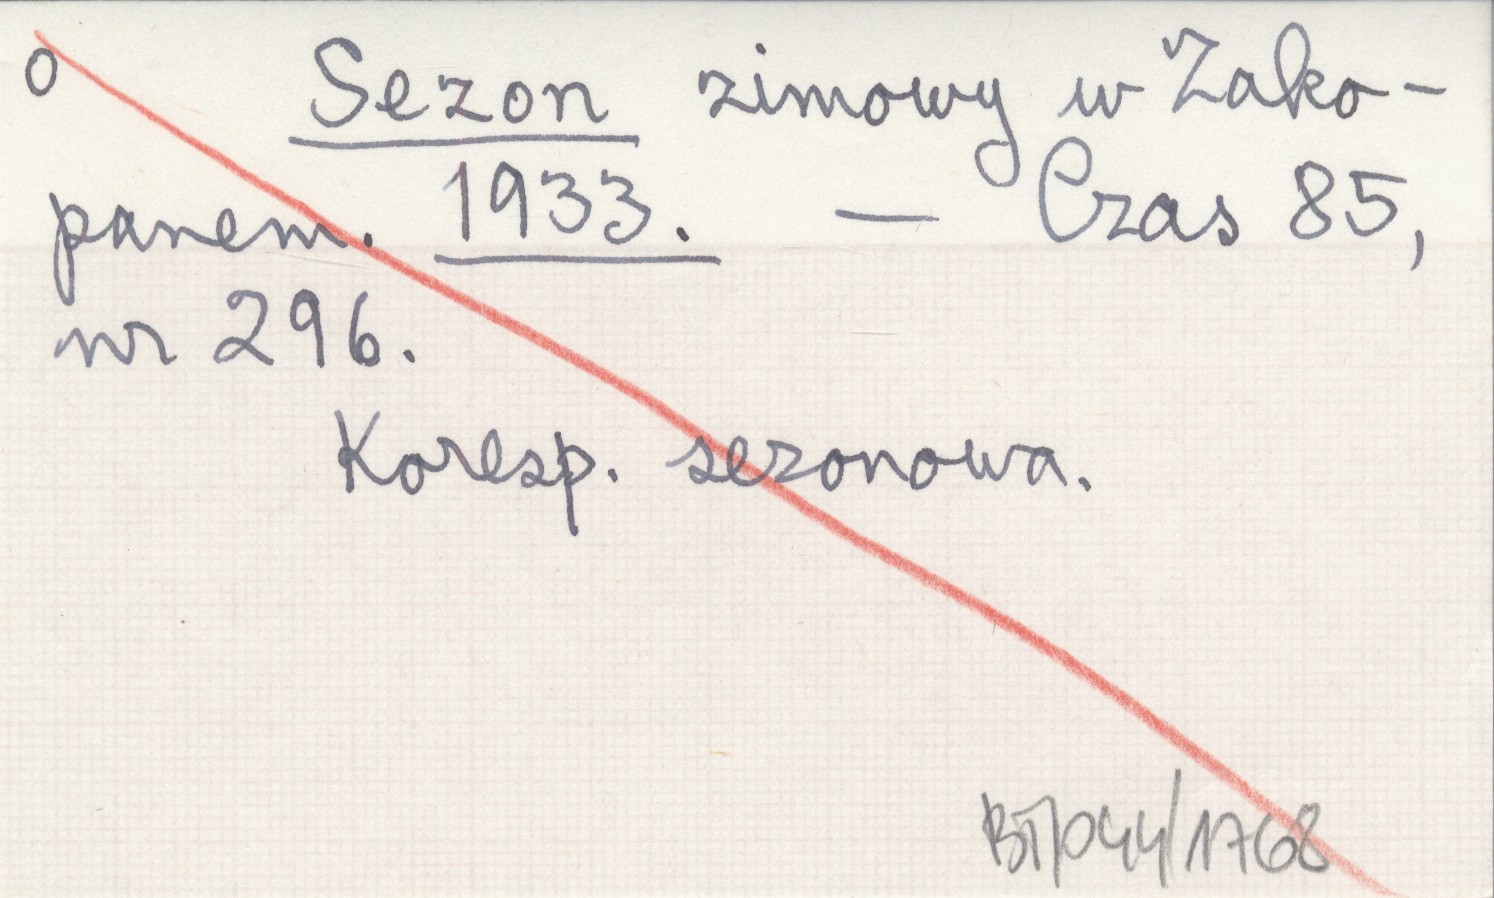 o Sezon zimowy w Zako-
panem. 1933. — Czas 85,
nr 296.
Koresp. sezonowa.
BT/044/1768